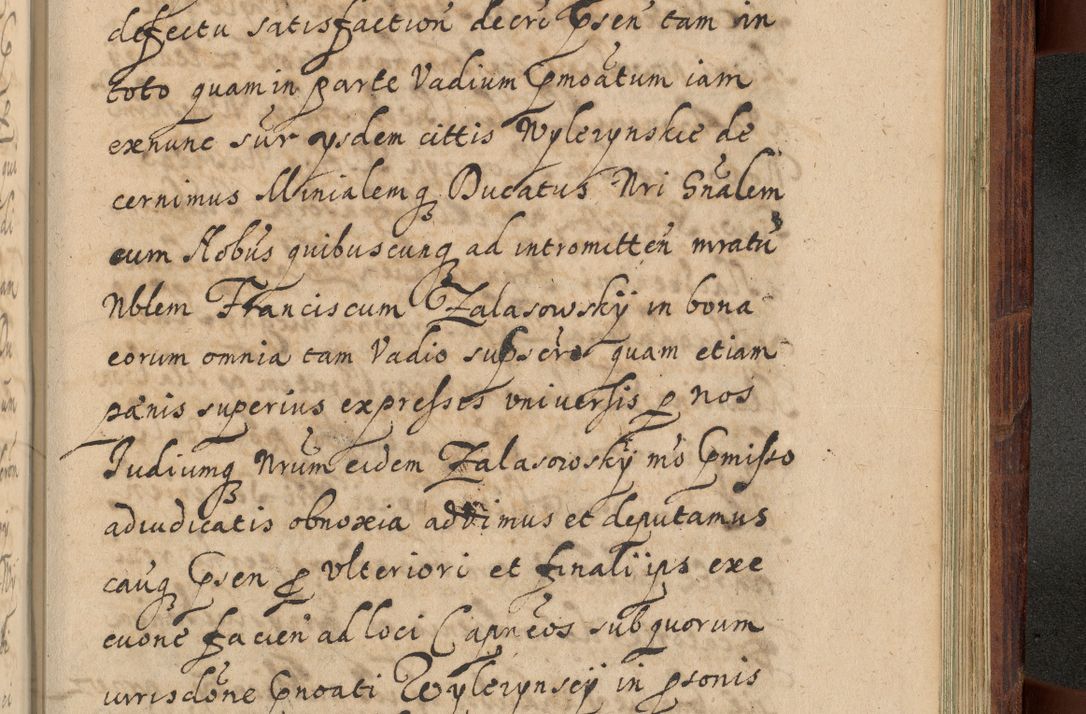 defectu satisfaction decri Psen tam in
toto quam in parte Vadium Pmoatum iam
exnunc sur ysdem cittis Wylezynskie de
cernimus Minialemq Ducatus Nri Gnalem
cum Nobus quibuscunq ad intromitten nratu
Nblem Franciscum Zalasowskÿ in bona
eorum omnia tam Vadio supscro quam etiam
pænis superius expressis vniversis p nos
Iudiumq Nrum eidem Zalasowskÿ mo Pmisso
adiudicatis obnoxia addimus et deputamus
cauq Psen p vlteriori et finali ips exe
cuone facien ad loci Capneos sub quorum
iurisdone Pnoati Wylezynscÿ in psonis